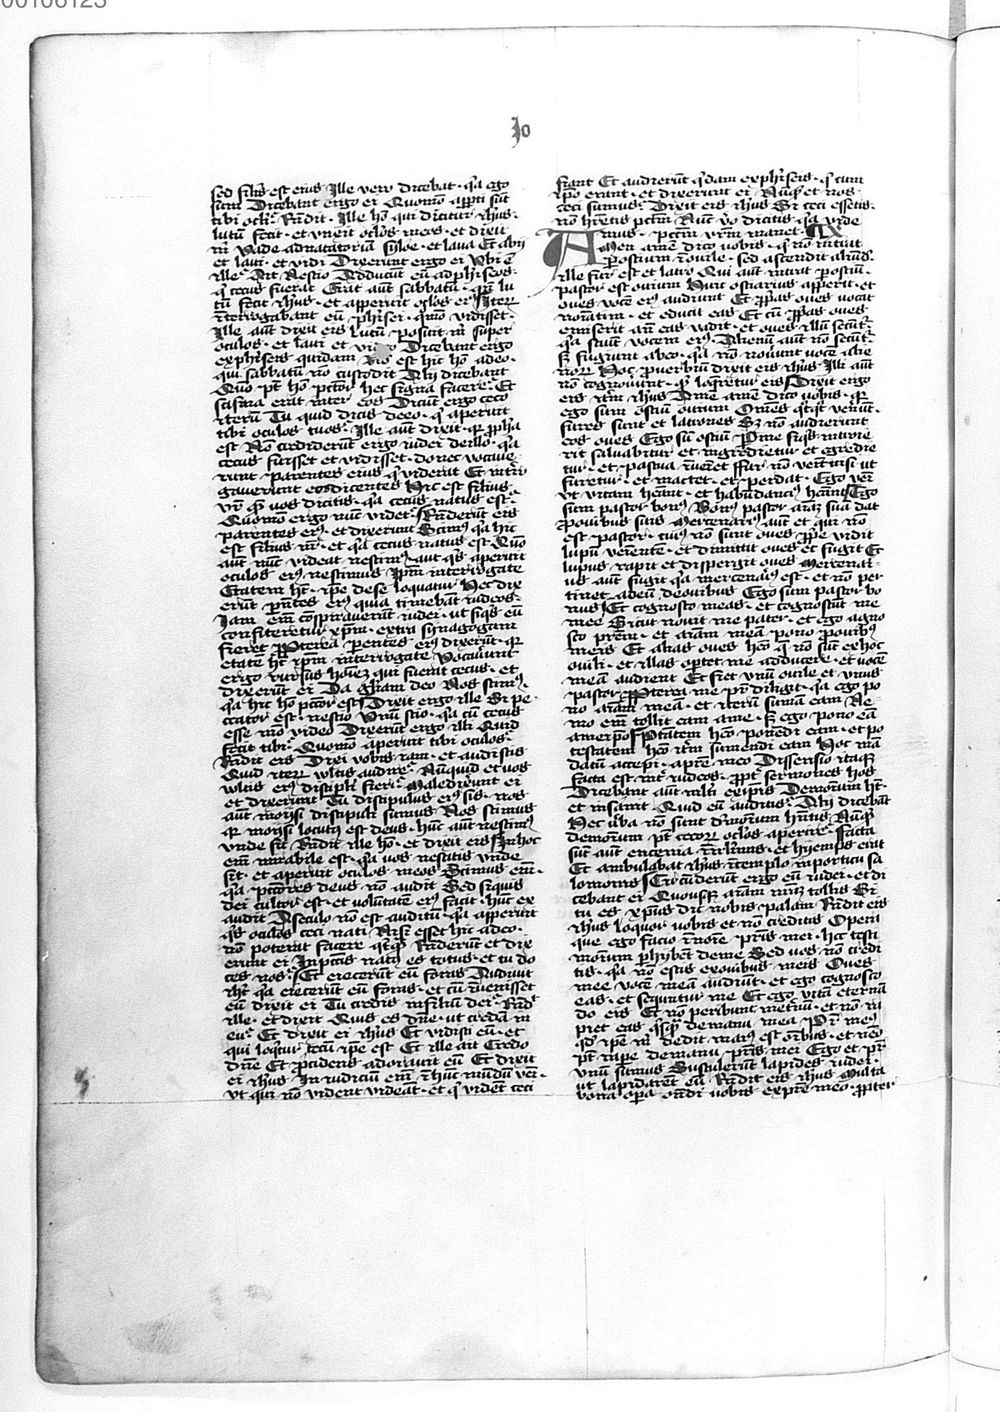 00106123
Jo
sed similis est eius Ille vero dicebat · qa ego
sum Dicebant ergo ei Quomo apti sut
tibi oculi Rndit · Ille ho qui dicitur ihus ·
lutu fecit · et unxit oclos meos · et dixit
m Vade ad natatoria siloe · et laua Et abij
et laui · et vidi Dixerunt ergo ei Vbi e
ille Ait Nescio Adducut eu ad phiseos ·
q cecus fuerat Erat aut sabbatu · qn lu
tu fecit ihus · et apperuit oclos ei Iteru
interrogabant eu phisei · quo vidisset ·
Ille aut dixit eis lutu posuit m super
oculos · et laui et video Dicebant ergo
ex phiseis quidam Non est hic ho a deo ·
qui sabbatu no custodit Alij dicebant
Quo pt ho pctor hec signa facere Et
scisma erat inter eos Dicut ergo ceco
iteru Tu quid dicis de eo · q aperuit
tibi oculos tuos Ille aut dixit · qr ppha
est No crediderut ergo iudei de illo · qa
cecus fuisset et vidisset · donec vocaue
runt parentes eius q viderat Et intro
gauerunt eos dicentes Hic est filius
vr que vos dicitis · qa cecus natus est
Quomo ergo nuc videt Rnderut eis
parentes ei et dixerunt Scimus qa hic
est filius nr · et qa cecus natus est Quo
aut nuc videat nescim · aut qs aperuit
oculos ei nescimus Ipm interrogate
Etatem ht · ipe de se loquatur Hec dix
erut pntes ei quia timebat iudeos
Iam em conspirauerut iudei · ut siqs eu
confiteretur xpm · extra synagogam
fieret Pterea parentes ei dixerut · qr
etate ht ipm interrogate Vocauerut
ergo rursus hoiez qui fuerat cecus · et
dixerut ei Da gliam deo Nos scim
qa hic ho pctor est Dixit ergo ille Si pec
cator est · nescio Vnu scio · qa cu cecus
esse mo video Dixerut ergo illi Quid
fecit tibi Quomo aperuit tibi oculos
Rndit eis Dixi vobis iam · et audistis
Quid iteru vultis audire Nuquid et vos
vultis ei discipli fieri Maledixerut ei
et dixerunt Tu discipulus ei sis · nos
aut moysi discipuli sumus Nos scimus
qr moysi locut est deus · huc aut nescim
vnde sit Rndit ille ho · et dixit eis In hoc
em mirabile est · qa vos nescitis vnde
sit · et aperuit oculos meos Scimus em ·
qa pctores deus no audit Sed siquis
dei cultor est · et volutate ei facit · huc ex
audit A seculo no est auditu · qa apperuit
qs oculos ceci nati Nisi esset hic a deo ·
no poterat facere qcq Rnderut et dix
erunt ei In pctis nat es totus · et tu do
ces nos Et eiecerut eu foras Audiuit
ihs qa eiecerut eu foras · et cu inuenisset
eu dixit ei Tu credis in filiu dei Rndit
ille · et dixit Quis es dne · ut creda in
eu Et dixit ei ihus Et vidisti eu · et
qui loqtur tecu ipe est Et ille ait Credo
dne Et pcidens adorauit eu Et dixit
ei ihus In iudiciu em i huc mudu veni
vt qui no vident videat · et q videt ceci
fiant Et audierut qdam ex phiseis · q cum
ipo erant · et dixerunt ei Nuqd et nos
ceci sumus Dixit eis ihus Si ceci essetis ·
no hretis pctm Nuc vo dicitis · qa vide
mus · pctm vrm manet · IX
Amen ame dico vobis · q no intrat
p ostium i ouile · sed ascendit aliud
ille fur est et latro Qui aut intrat p ostiu ·
pastor est ouium Huic ostiarius apperit · et
oues voce ei audiunt Et ppas oues vocat
nominatim · et educit eas Et cu ppas oues
emiserit an eas vadit · et oues illu secut
qa sciut vocem ei Alienu aut no secut
sz fugiunt ab eo · qa no nouint voce alie
noru Hoc prouerbiu dixit eis ihus Illi aut
no cognouint · qd loqretur eis Dixit ergo
eis itm ihus Ame ame dico vobis · qr
ego sum ostiu ouium Omes qtqt venut ·
fures sunt et latrones Sz no audierunt
eos oues Ego su ostiu P me siqs introie
rit saluabitur et ingredietur et egredie
tur · et pascua inueiet Fur no venit nisi ut
furetur · et mactet · et perdat · Ego veni
vt vitam heant · et habundancius heant Ego
sum pastor bonus Bonus pastor aiaz sua dat
pro ouibus suis Mercenarius aut et qui no
est pastor · cuius no sunt oues pprie vidit
lupu veniente · et dimittit oues et fugit Et
lupus rapit et dispergit oues Mercenari
us aut fugit qa mercenarius est · et no per
tinet ad eu de ouibus Ego sum pastor bo
nus Et cognosco meas · et cognoscut me
mee Sicut nouit me pater · et ego agno
sco prem · et aiam mea pono pro ouibus
meis Et alias oues heo q no sut ex hoc
ouili · et illas optet me adducere · et voce
mea audient Et fiet vnu ouile et vnus
pastor Pterea me pr diligit · qa ego po
no aiam mea · et iteru sumam eam Ne
mo em tollit eam a me · sz ego pono ea
a meipso Ptatem heo ponedi eam · et po
testatem heo itm sumendi eam Hoc ma
datu accepi · a pre meo Dissensio itaq
facta est int iudeos · ppt sermones hos
Dicebant aut multi ex ipis Demoniu ht ·
et insanit Quid eu auditis Alij dicebat
Hec vba no sunt demoniu hntis Nuqd
demonium pt cecoru oclos aperire Facta
sut aut encenia i irlimis · et hyemps erat
Et ambulabat ihus i templo in porticu sa
lomonis Circuderunt ergo eu iudei · et di
cebant ei Quousq aiam nraz tollis Si
tu es xpus dic nobis palam Rndit eis
ihus Loquor vobis et no creditis Opera
que ego facio i noie pris mei · hec testi
monium phibent de me Sed vos no credi
tis · qa no estis ex ouibus meis Oues
mee voce mea audiut · et ego cognosco
eas · et sequntur me Et ego vita eternu
do eis Et no peribunt in eternu · et no ra
piet eas qsq de manu mea Pr meus
qd ipe m dedit maius est oibus · et nemo
pt rape de manu pris mei Ego et pr
vnu sumus Sustulerut lapides iudei
ut lapidaret eu Rndit eis ihus Multa
bona opa ondi vobis ex pre meo · ppter